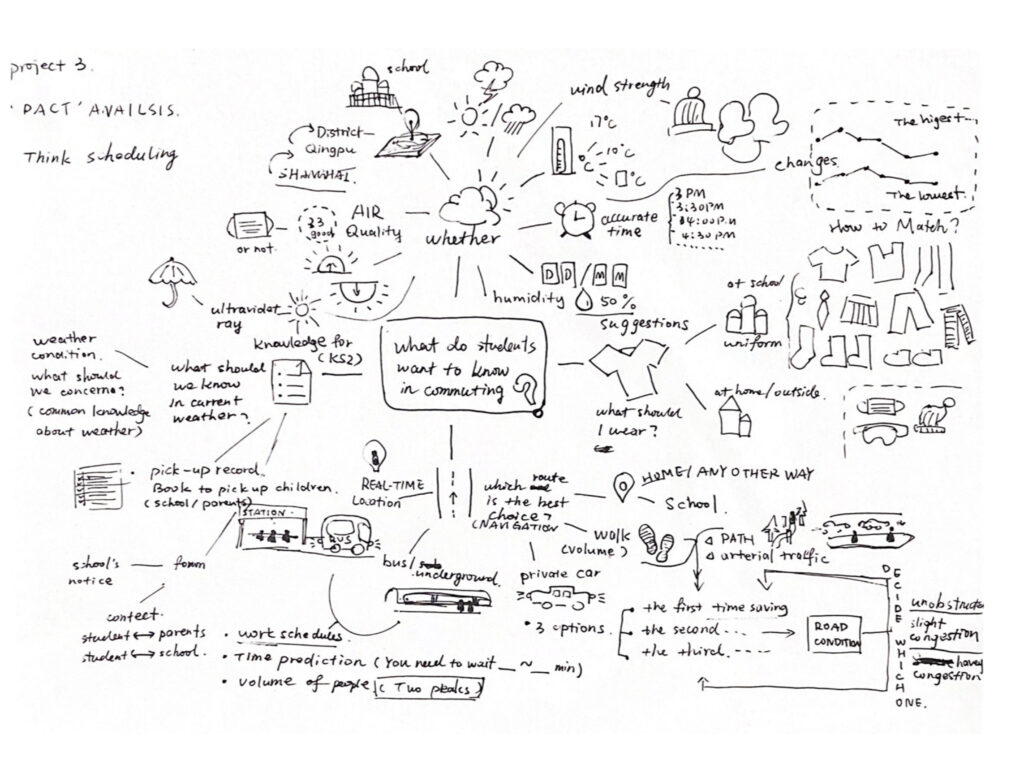 project 3.
'PACT' ANAILSIS.
Think scheduling
school
District
Qingpu
SHANGHAI
wind strength
17°C
10°C
°C
changes
The higest...
The lowest.
How to Match?
AIR
Quality
33
good
or not.
whether
accurate
time
3 PM
3:30PM
04:00PM
4:30 PM
D D / M M
humidity
50%
ultraviolet
ray
suggestions
at school
uniform
at home/outside.
what should
I wear?
what do students
want to know
in commuting
?
knowledge for
(KS2)
what should
we know
in current
weather?
weather
condition.
what should
we concerne?
(common knowledge
about weather)
• pick-up record.
Book to pick up children.
(school/parents)
REAL-TIME
LOCATION
STATION
BUS
bus/
underground.
which route
is the best
choice?
(NAVIGATION
HOME/ANY OTHER WAY
School.
walk
(volume)
PATH
arterial traffic
private car
• 3 options.
the first time saving
the second ...
the third. ....
ROAD
CONDITION
DECIDE WHICH ONE.
unobstructed
slight
congestion
havey
congestion
school's
notice
form
contect.
student ↔ parents
student ↔ school.
• work schedules.
• Time prediction (You need to wait _ ~ _ min)
• volume of people (Two peaks)